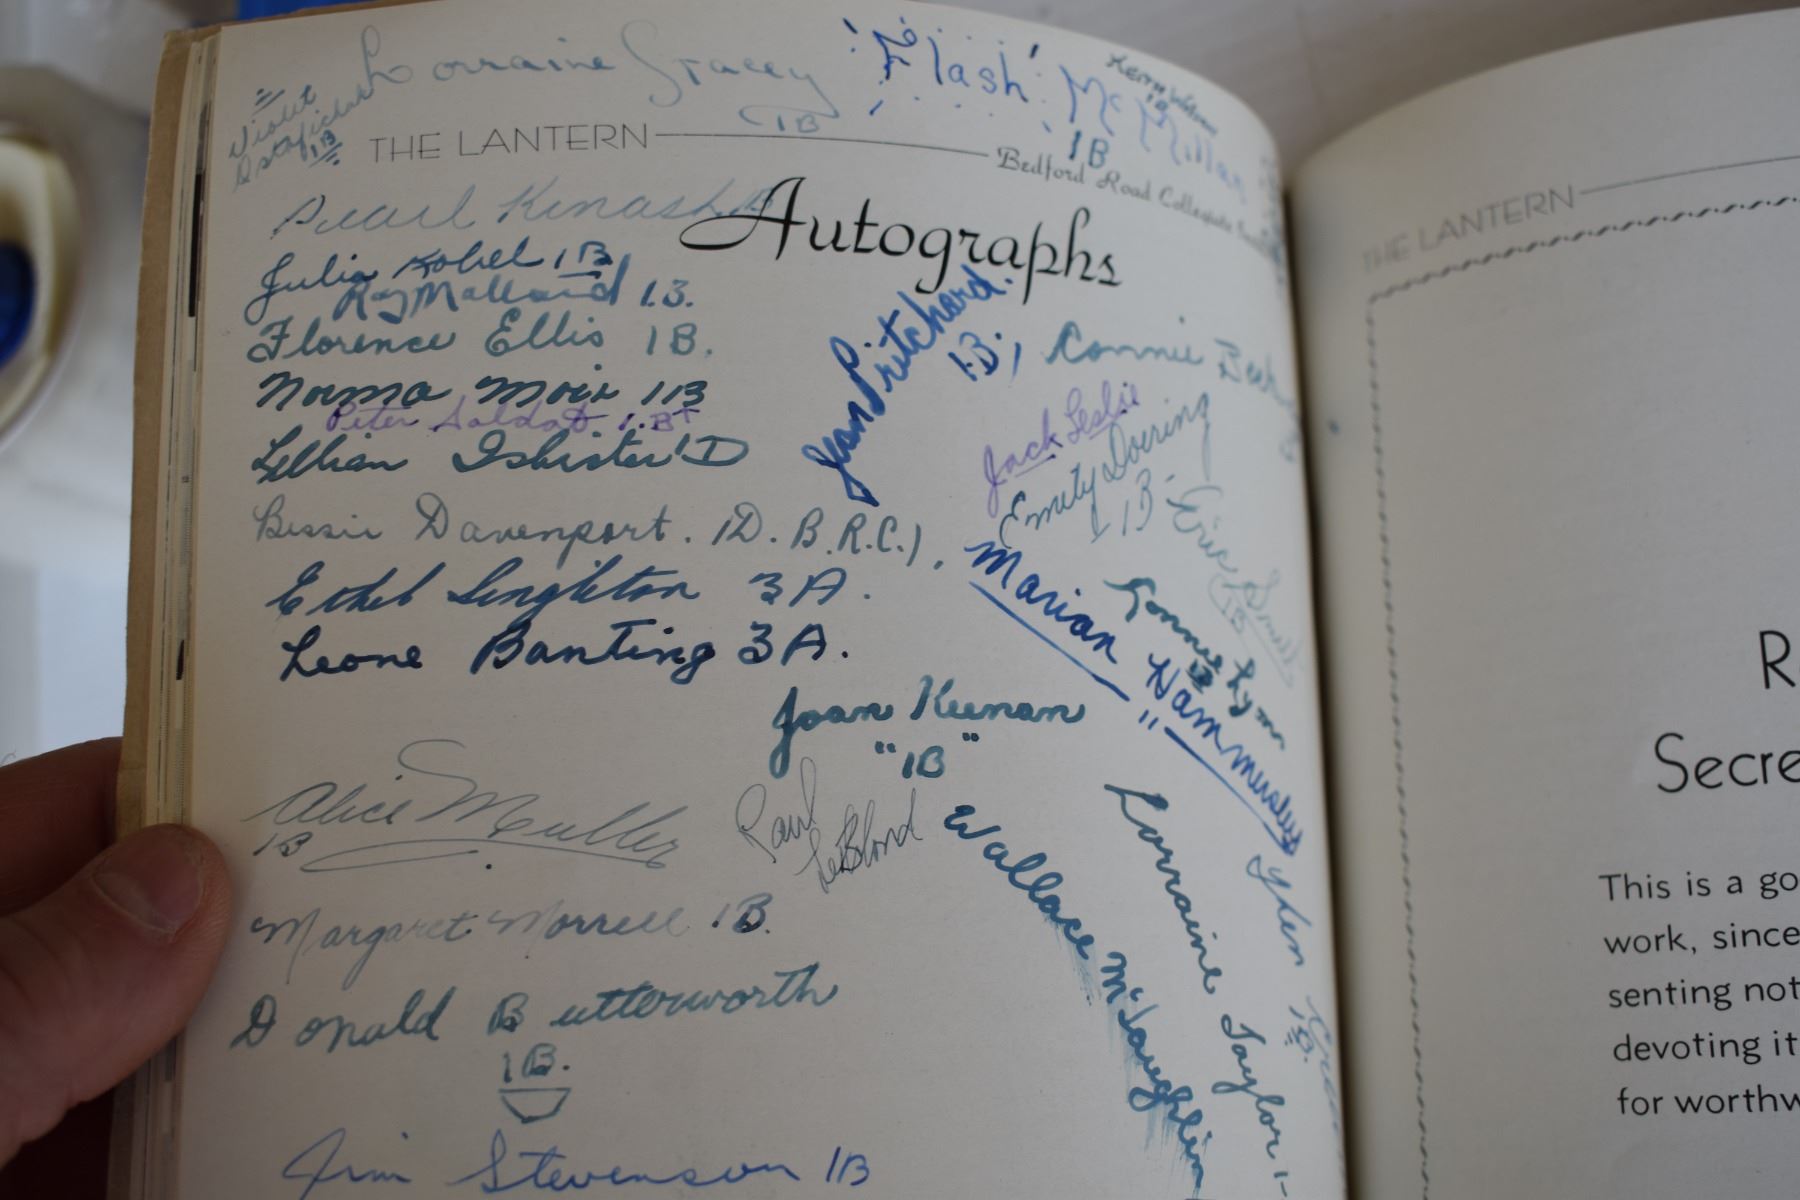 Lorraine Stacey
1B
'Flash' McMillan
1B
Violet
1B
THE LANTERN
Bedford Road Collegiate
Autographs
Pearl Kinash 1B
Julia Kobel 1B
Ray Mallard 1.B.
Florence Ellis 1B.
Norma Moir 1B
Peter Soldat 1.B+
Lillian Isbister 1D
Bessie Davenport. 1D. B.R.C.1.
Ethel Singleton 3A.
Leone Banting 3A.
Jean Pritchard.
1.B.
Connie
Jack Leslie
Emily Doering
1B.
Eric Smith
1B
Marian Hammersley
Ronnie Lynn
Joan Keenan
"1B"
Alice Muller
1B
Paul
LeBlond
Wallace McLaughlin
Lorraine Taylor
Margaret Morrell 1B.
Donald Butterworth
1B.
Jim Stevenson 1B
THE LANTERN
R
Secre
This is a go
work, since
senting not
devoting it
for worthw